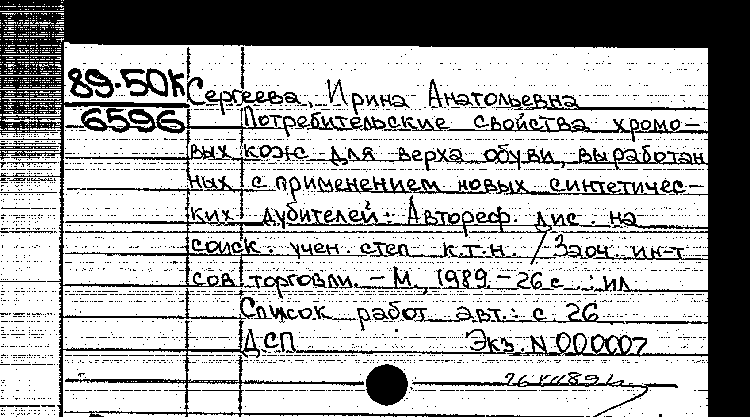 89-50К Сергеева, Ирина Анатольевна
6596 Потребительские свойства хромо-
вых кож для верха обуви, выработан
ных с применением новых синтетичес-
ких дубителей: Автореф. дис. на
соиск. учен. степ к.т.н. / Заоч. ин-т
сов торговли. - М., 1989. - 26 с. : ил
Список работ авт.: с. 26
ДСП Экз. N 000007